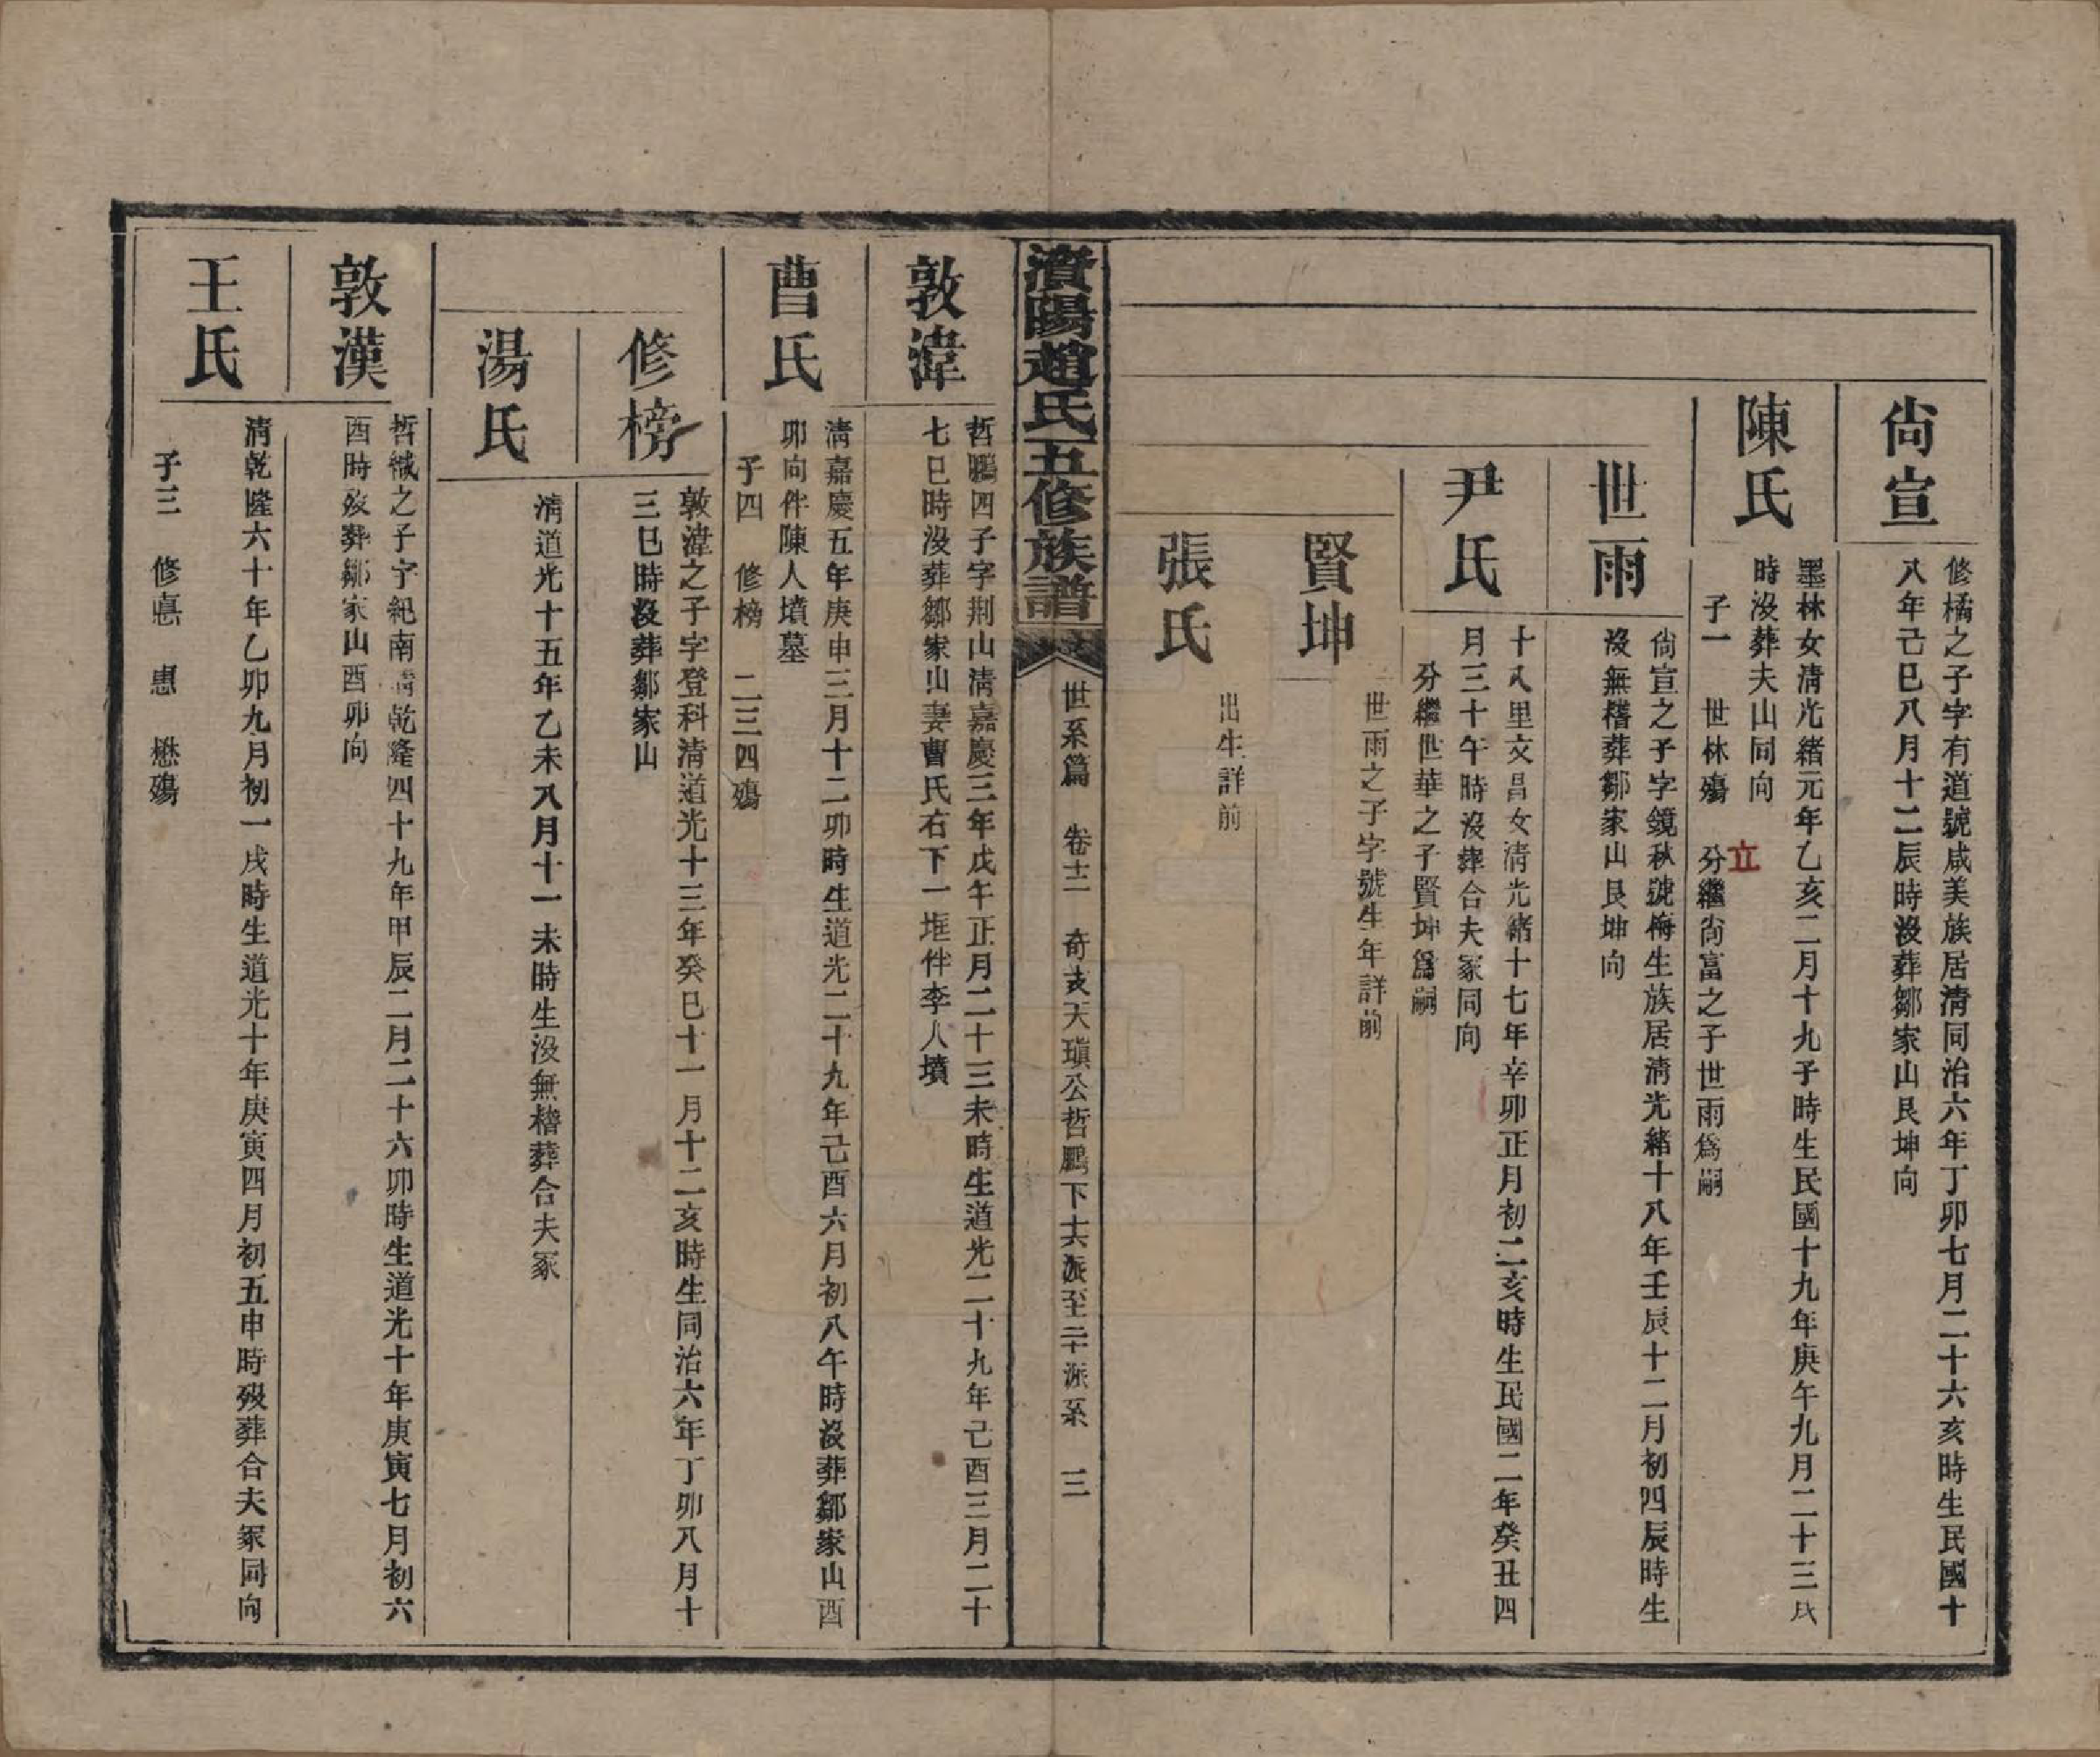 尙宣
修橘之子字有道號咸美族居淸同治六年丁卯七月二十六亥時生民國十
八年己巳八月十二辰時沒葬鄒家山艮坤向
陳氏
墨林女淸光緖元年乙亥二月十九子時生民國十九年庚午九月二十三辰
時沒葬夫山同向
立
子一　世林殤　分繼尙富之子世雨爲嗣
世雨
尙宣之子字鏡秋號梅生族居淸光緖十八年壬辰十二月初四辰時生
沒無稽葬鄒家山艮坤向
尹氏
十八里文昌女淸光緖十七年辛卯正月初二亥時生民國二年癸丑四
月三十午時沒葬合夫冢同向
分繼世華之子賢坤爲嗣
賢坤
世雨之子字號生年詳前
張氏
出生詳前
濱陽趙氏五修族譜
世系篇　卷十二　奇支天瑱公哲鵬下十六派至二十派系　三
敦湋
哲鵬四子字荆山淸嘉慶三年戊午正月二十三未時生道光二十九年己酉三月二十
七巳時沒葬鄒家山妻曹氏右下一堆伴李人墳
曹氏
淸嘉慶五年庚申三月十二卯時生道光二十九年己酉六月初八午時沒葬鄒家山酉
卯向伴陳人墳墓
子四　修榜　二三四殤
修榜
敦湋之子字登科淸道光十三年癸巳十一月十二亥時生同治六年丁卯八月十
三巳時沒葬鄒家山
湯氏
淸道光十五年乙未八月十一未時生沒無稽葬合夫冢
敦漢
哲棫之子字紀南淸乾隆四十九年甲辰二月二十六卯時生道光十年庚寅七月初六
酉時歿葬鄒家山酉卯向
王氏
淸乾隆六十年乙卯九月初一戌時生道光十年庚寅四月初五申時歿葬合夫冢同向
子三　修惪　惠　懋殤